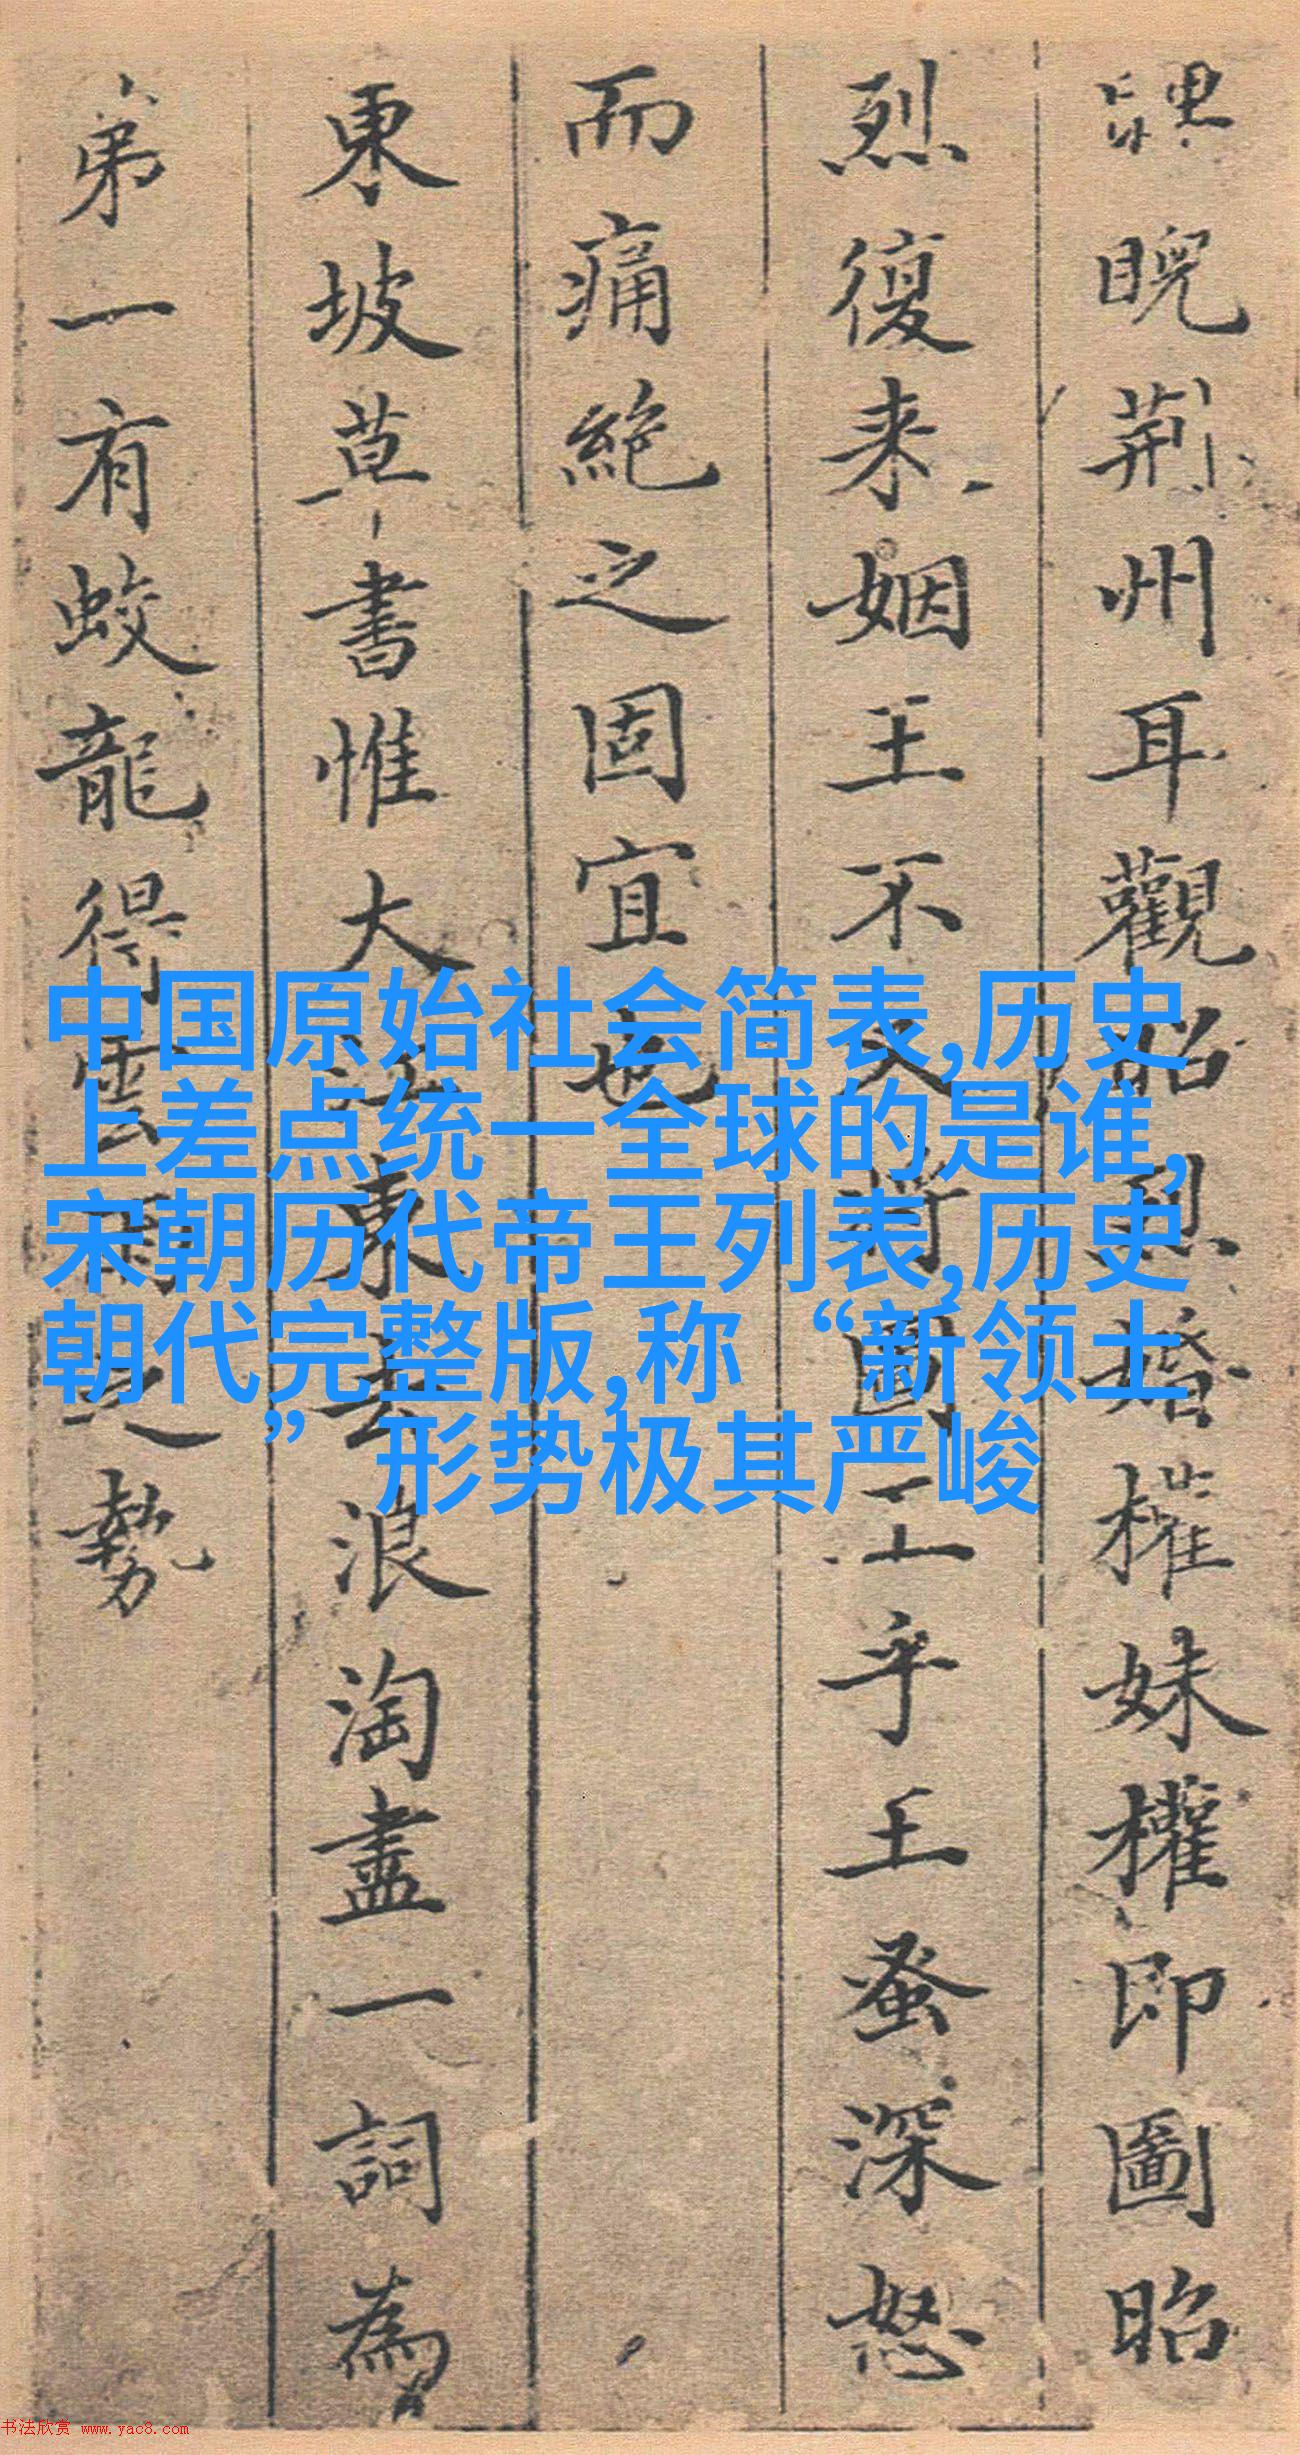 睨荆州耳觀昭烈婚權妹權即圖昭
烈復来姻王不久將圖王乎王蚤深怒
而痛絶之固宜也
東坡草書惟大江東去浪淘盡一詞為
弟一有蛟龍得雲雨之勢
中国原始社会简表,历史
上差点统一全球的是谁,
宋朝历代帝王列表,历史
朝代完整版,称“新领土
”形势极其严峻
书法欣赏 www.yac8.com